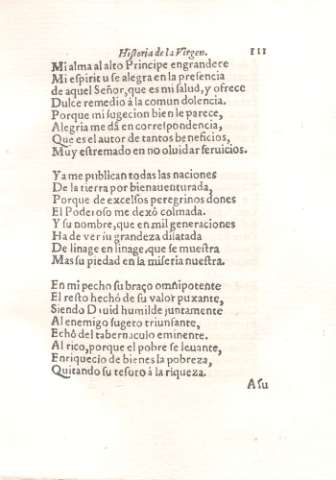 Historia de la Virgen. 111
Mi alma al alto Principe engrandece
Mi espiritu se alegra en la presencia
de aquel Señor, que es mi salud, y ofrece
Dulce remedio à la comun dolencia.
Porque mi sugecion bien le parece,
Alegria me dà en correspondencia,
Que es el autor de tantos beneficios,
Muy estremado en no oluidar seruicios.
Ya me publican todas las naciones
De la tierra por bienauenturada,
Porque de excelsos peregrinos dones
El Poderoso me dexò colmada.
Y su nombre, que en mil generaciones
Ha de ver su grandeza dilatada
De linage en linage, que se muestra
Mas su piedad en la miseria nuestra.
En mi pecho su braço omnipotente
El resto hechò de su valor puxante,
Siendo Dauid humilde juntamente
Al enemigo sugeto triunfante,
Echò del tabernaculo eminente.
Al rico, porque el pobre se leuante,
Enriquecio de bienes la pobreza,
Quitando su tesoro à la riqueza.
A su